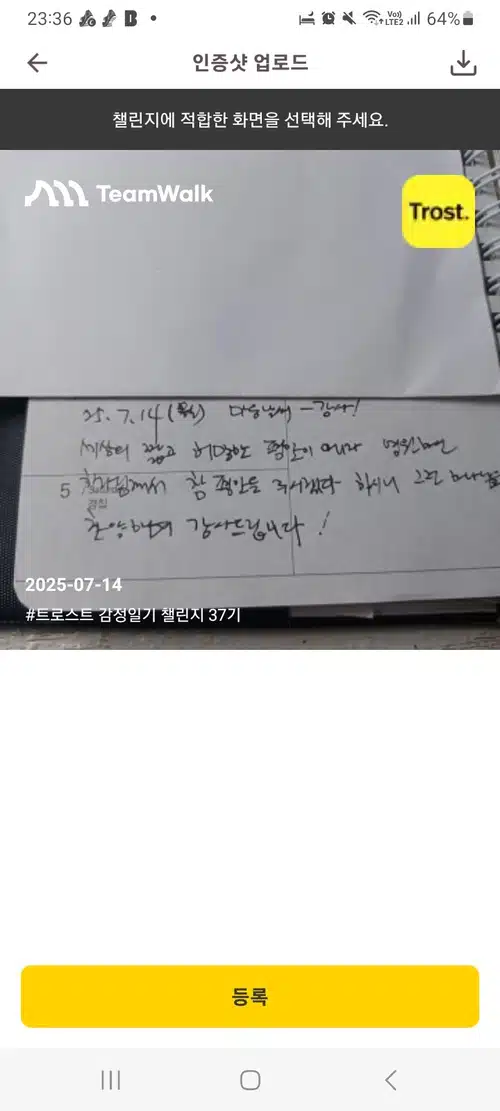 23:36
Vo)) LTE2
64%
인증샷 업로드
챌린지에 적합한 화면을 선택해 주세요.
TeamWalk
Trost.
25. 7. 14 (월) 감사!
세상의 짧고 허망한 평안이 아니라 영원하신
5 하나님께서 참 평안을 주시겠다 하시니 그런 하나님을
찬양하며 감사드립니다!
2025-07-14
#트로스트 감정일기 챌린지 37기
등록